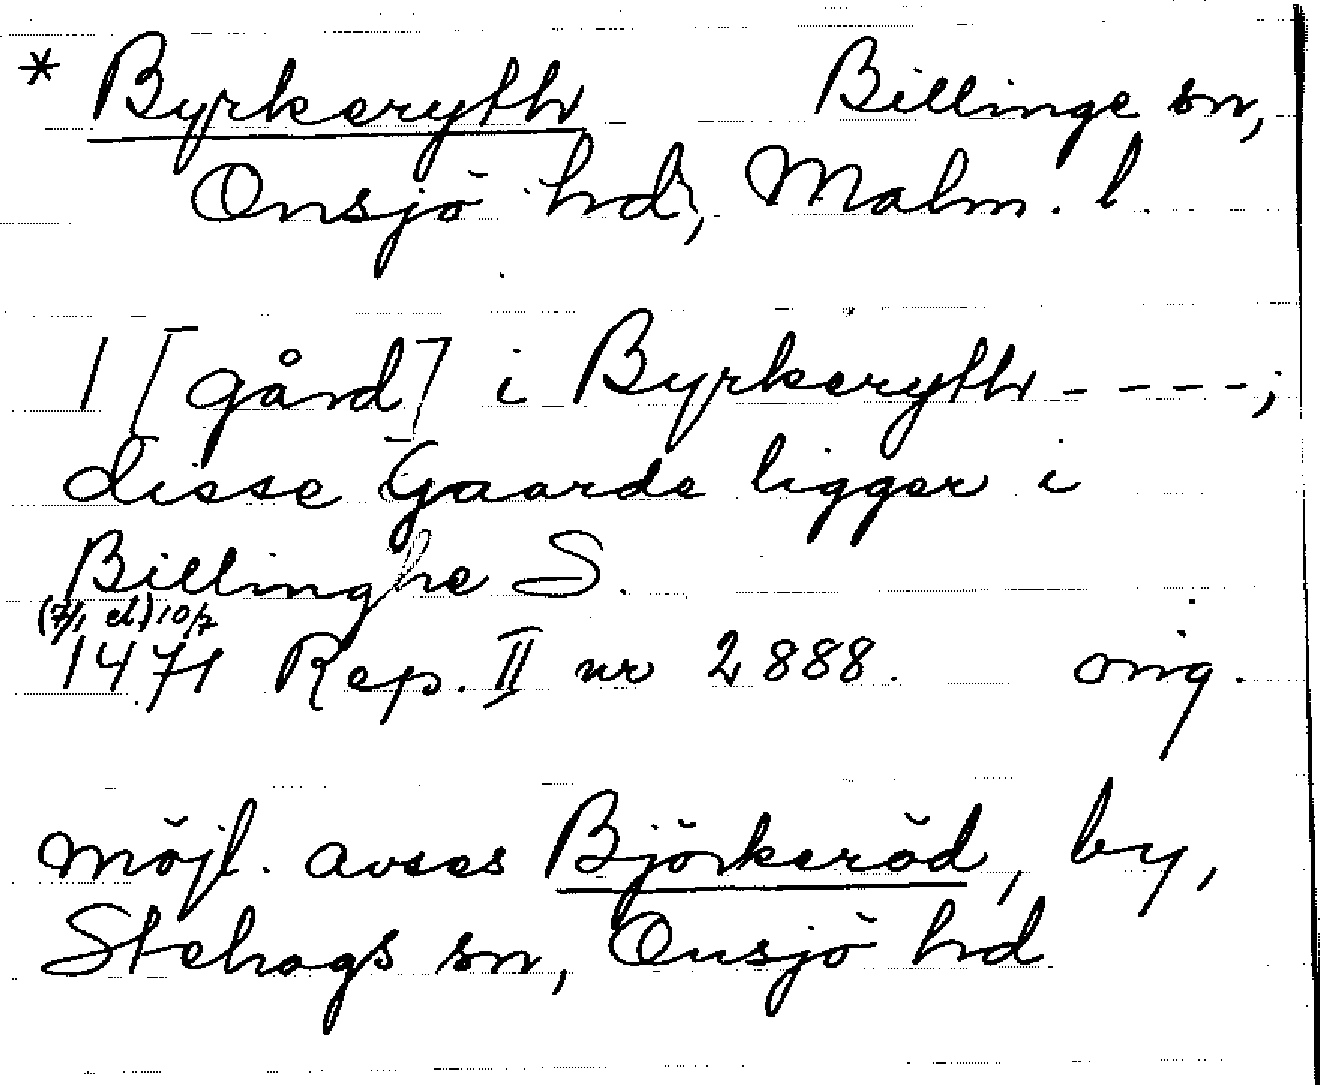 * Byrkeryth Billinge sn,
Onsjö hd, Malm. l.
1 [gård] i Byrkeryth - - - -;
disse Gaarde ligger i
Billinghe S.
(7/1 el.) 10/7
1471 Rep. II nr 2888. orig.
Möjl. avses Björkeröd, by,
Stehags sn, Onsjö hd